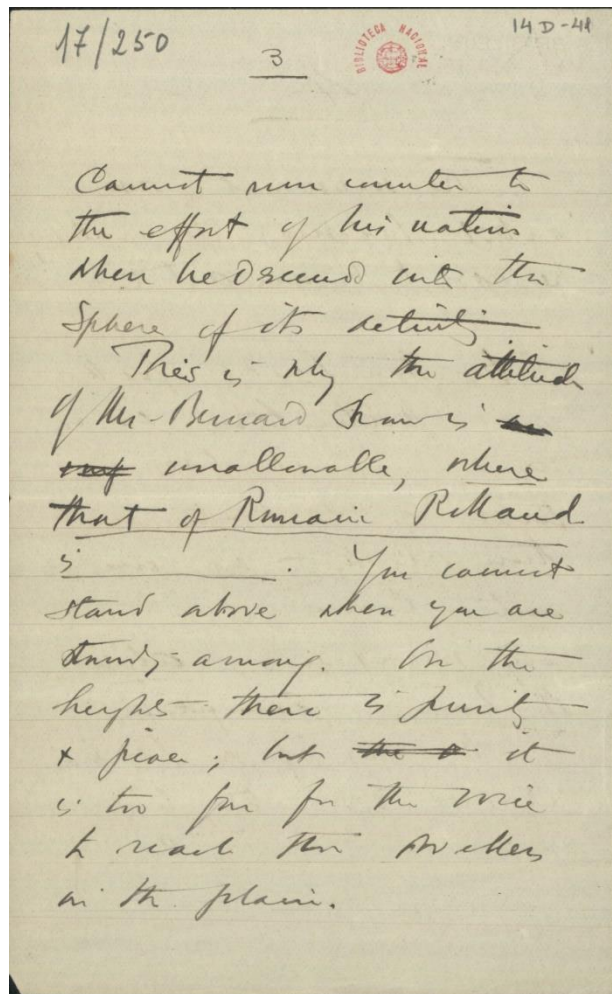 17/250
3
BIBLIOTECA NACIONAL
14D-41
Cannot run counter to
the effort of his nation
when he descends into the
sphere of its activity
This is why the attitude
of Mr. Bernard Shaw is
unallowable, where
that of Romain Rolland
is . You cannot
stand above when you are
standing among. On the
heights there is purity
& peace; but the it
is too far for the voice
to reach the dwellers
in the plain.